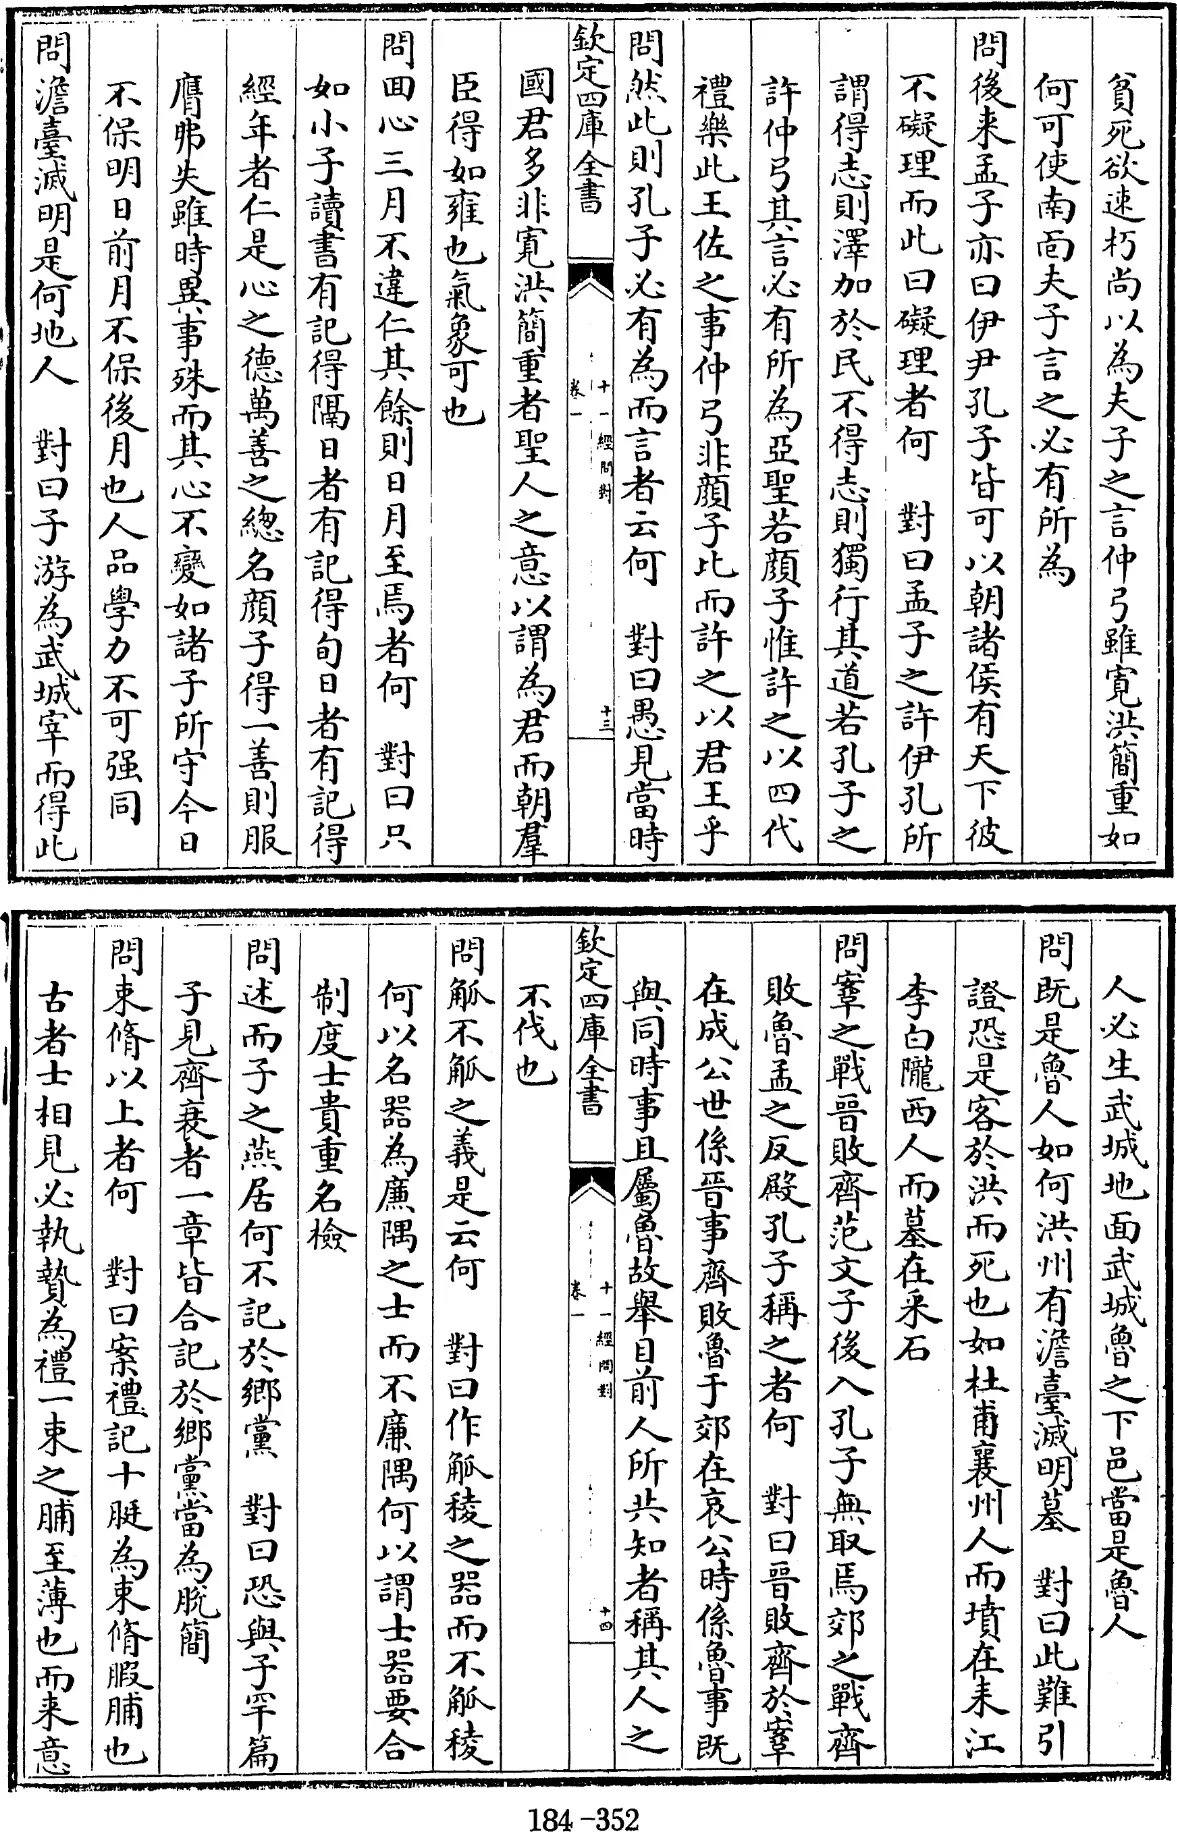 貧死欲速朽尚以為夫子之言仲弓雖寛洪簡重如
何可使南面夫子言之必有所為
問後来孟子亦曰伊尹孔子皆可以朝諸侯有天下彼
不礙理而此曰礙理者何　對曰孟子之許伊孔所
謂得志則澤加於民不得志則獨行其道若孔子之
許仲弓其言必有所為亞聖若顔子惟許之以四代
禮樂此王佐之事仲弓非顔子比而許之以君王乎
問然此則孔子必有為而言者云何　對曰愚見當時
欽定四庫全書
十一經問對
卷一
十三
國君多非寛洪簡重者聖人之意以謂為君而朝羣
臣得如雍也氣象可也
問回心三月不違仁其餘則日月至焉者何　對曰只
如小子讀書有記得隔日者有記得旬日者有記得
經年者仁是心之德萬善之總名顔子得一善則服
膺弗失雖時異事殊而其心不變如諸子所守今日
不保明日前月不保後月也人品學力不可强同
問澹臺滅明是何地人　對曰子游為武城宰而得此
人必生武城地面武城魯之下邑當是魯人
問既是魯人如何洪州有澹臺滅明墓　對曰此難引
證恐是客於洪而死也如杜甫襄州人而墳在耒江
李白隴西人而墓在采石
問鞌之戰晉敗齊范文子後入孔子無取焉郊之戰齊
敗魯孟之反殿孔子稱之者何　對曰晉敗齊於鞌
在成公世係晉事齊敗魯于郊在哀公時係魯事既
與同時事且屬魯故舉目前人所共知者稱其人之
欽定四庫全書
十一經問對
卷一
十四
不伐也
問觚不觚之義是云何　對曰作觚稜之器而不觚稜
何以名器為廉隅之士而不廉隅何以謂士器要合
制度士貴重名檢
問述而子之燕居何不記於鄉黨　對曰恐與子罕篇
子見齊衰者一章皆合記於鄉黨當為脱簡
問束脩以上者何　對曰案禮記十脡為束脩腶脯也
古者士相見必執贄為禮一束之脯至薄也而来意
184-352